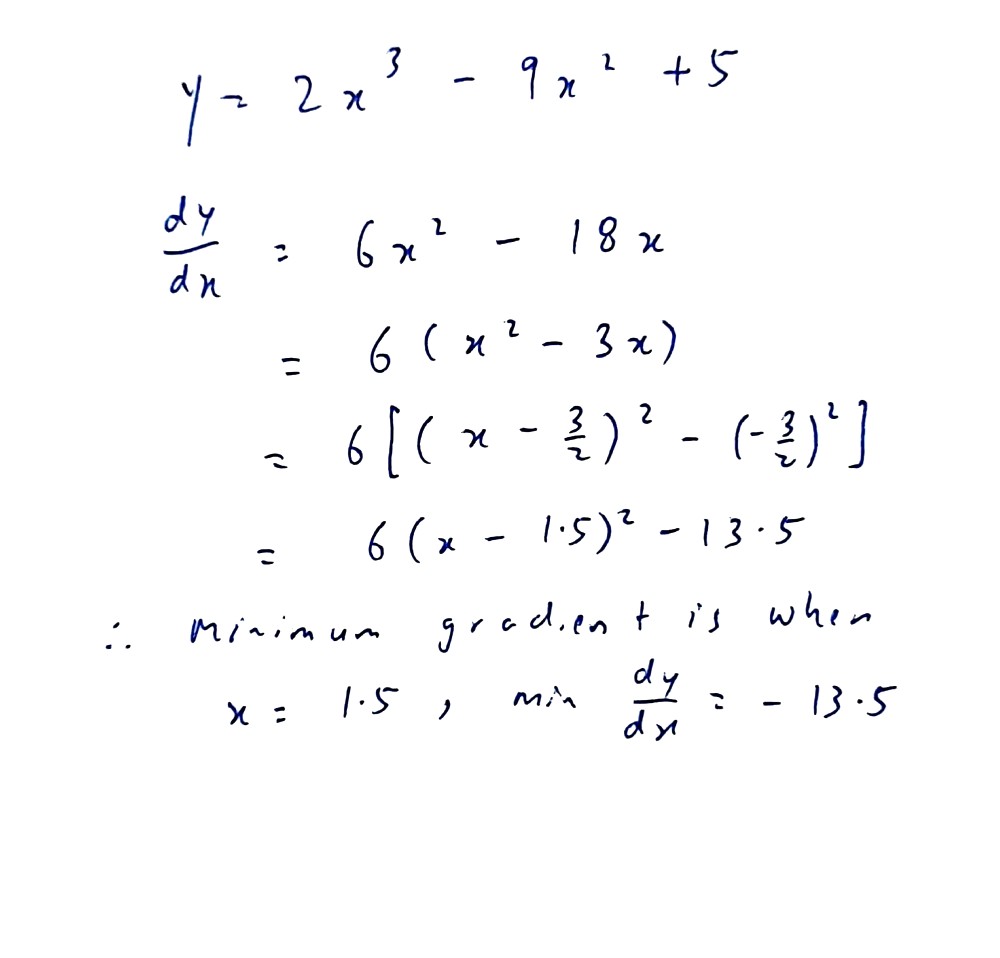 y = 2x³ - 9x² + 5
dy/dx = 6x² - 18x
= 6(x² - 3x)
= 6[(x - 3/2)² - (-3/2)²]
= 6(x - 1.5)² - 13.5
∴ minimum gradient is when
x = 1.5, min dy/dx = -13.5